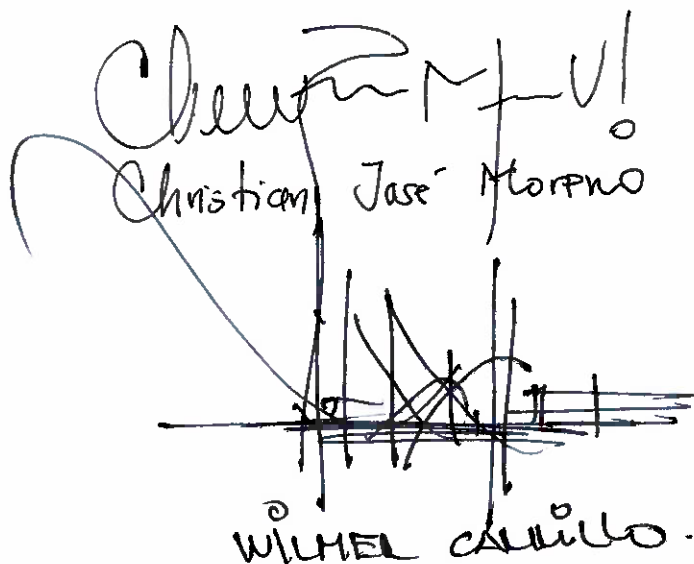 Christian José Moreno
WILMER CARRILLO.